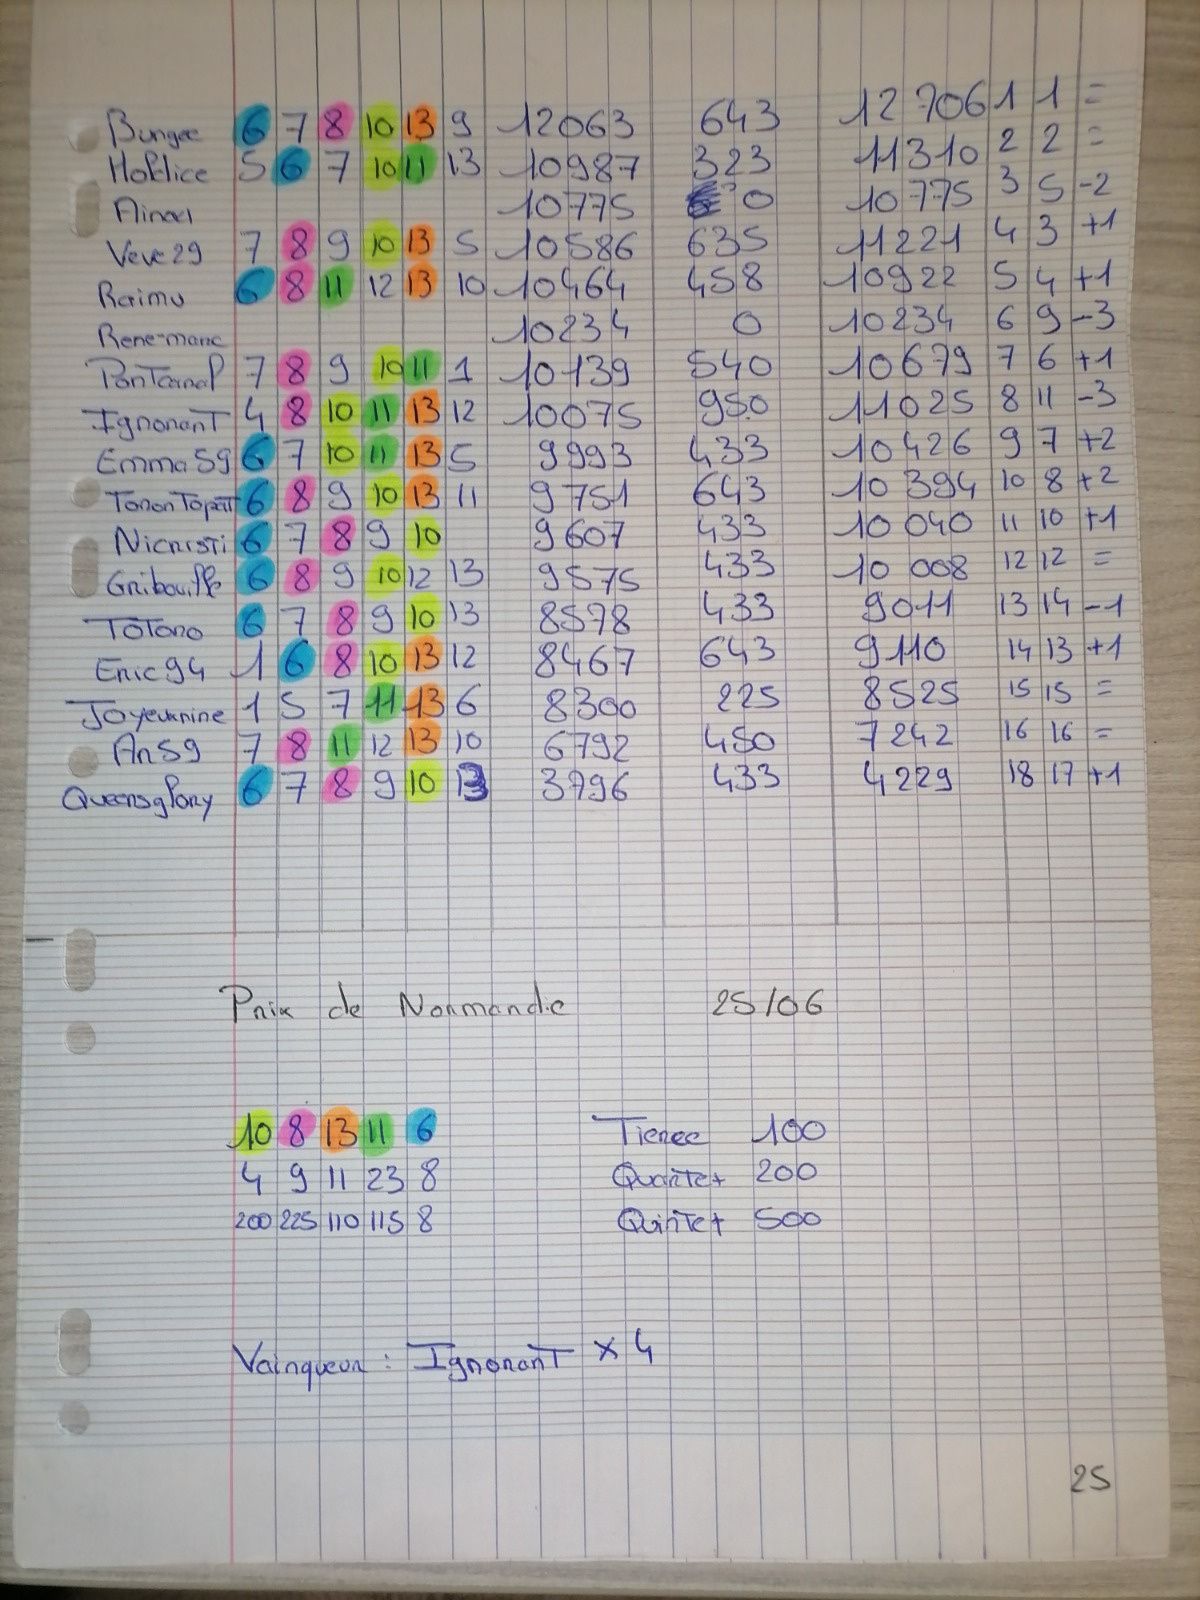 Bungee 6 7 8 10 13 9 12063 643 12706 1 1 =
Hoklice 5 6 7 10 11 13 10987 323 11310 2 2 =
10775 0 10775 3 5 -2
Veve29 7 8 9 10 13 5 10586 635 11221 4 3 +1
Raimu 6 8 11 12 13 10 10464 458 10922 5 4 +1
Rene-marc 10234 0 10234 6 9 -3
7 8 9 10 11 1 10139 540 10679 7 6 +1
IgnoranT 4 8 10 11 13 12 10075 950 11025 8 11 -3
Emma59 6 7 10 11 13 5 9993 433 10426 9 7 +2
6 8 9 10 13 11 9751 643 10394 10 8 +2
Nicristi 6 7 8 9 10 9607 433 10040 11 10 +1
Gribouille 6 8 9 10 12 13 9575 433 10008 12 12 =
Totono 6 7 8 9 10 13 8578 433 9011 13 14 -1
Eric94 1 6 8 10 13 12 8467 643 9110 14 13 +1
1 5 7 11 13 6 8300 225 8525 15 15 =
An59 7 8 11 12 13 10 6792 450 7242 16 16 =
Queensglory 6 7 8 9 10 13 3796 433 4229 18 17 +1
Prix de Normandie 25/06
10 8 13 11 6 Tierce 100
4 9 11 23 8 Quarte+ 200
200 225 110 115 8 Quinte+ 500
Vainqueur : IgnoranT x 4
25